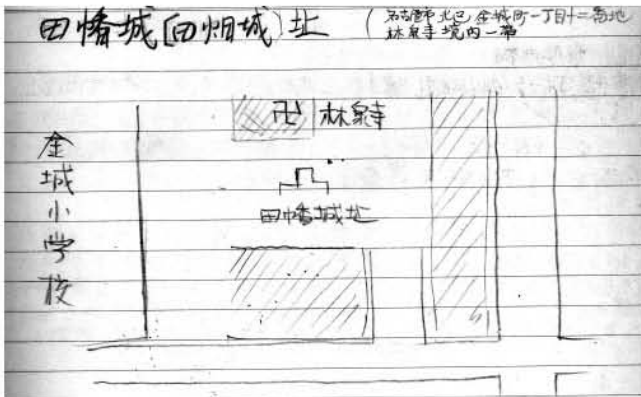 田幡城[田畑城]址
(名古屋市北区金城町一丁目十二番地
林泉寺境内一帯
卍 林泉寺
田幡城址
金城小学校